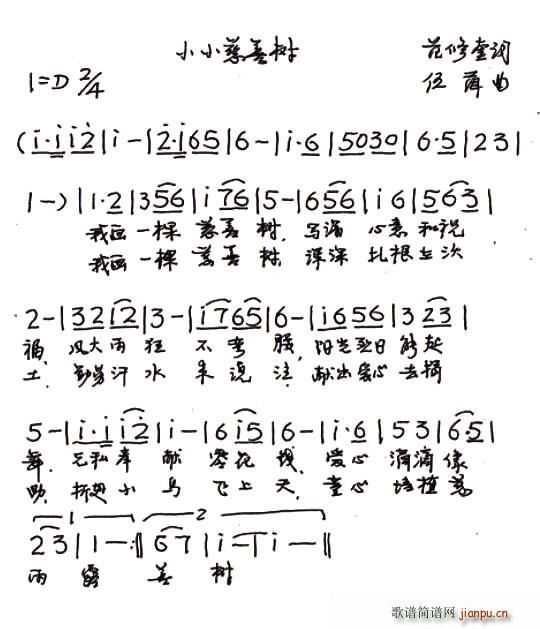 小小慈善树
范修奎词
1=D 2/4
伍 薛 曲
(i·i i2̇|i-|2̇·i65|6-|i·6|5030|6·5|23|
1-)|1·2|356|i 76|5-|656|i6|563|
我画一棵 慈善 树, 写满 心意和祝
我画一棵 慈善 树, 深深 扎根
2-|32i2̇|3-|i765|6-|i656|3 23|
福, 风大雨狂 不弯腰, 阳光 能起
土, 汗水 来浇注, 献出爱心 去
5-|i·i i2̇|i-|6i5|6-|i·6|53|65|
舞, 无私奉献 零花钱, 爱心 滴滴像
折只小鸟 飞上天, 童心 培植慈
1 2
23|1-:‖67|i-|i-‖
雨露 善树
歌谱简谱网
jianpu.cn